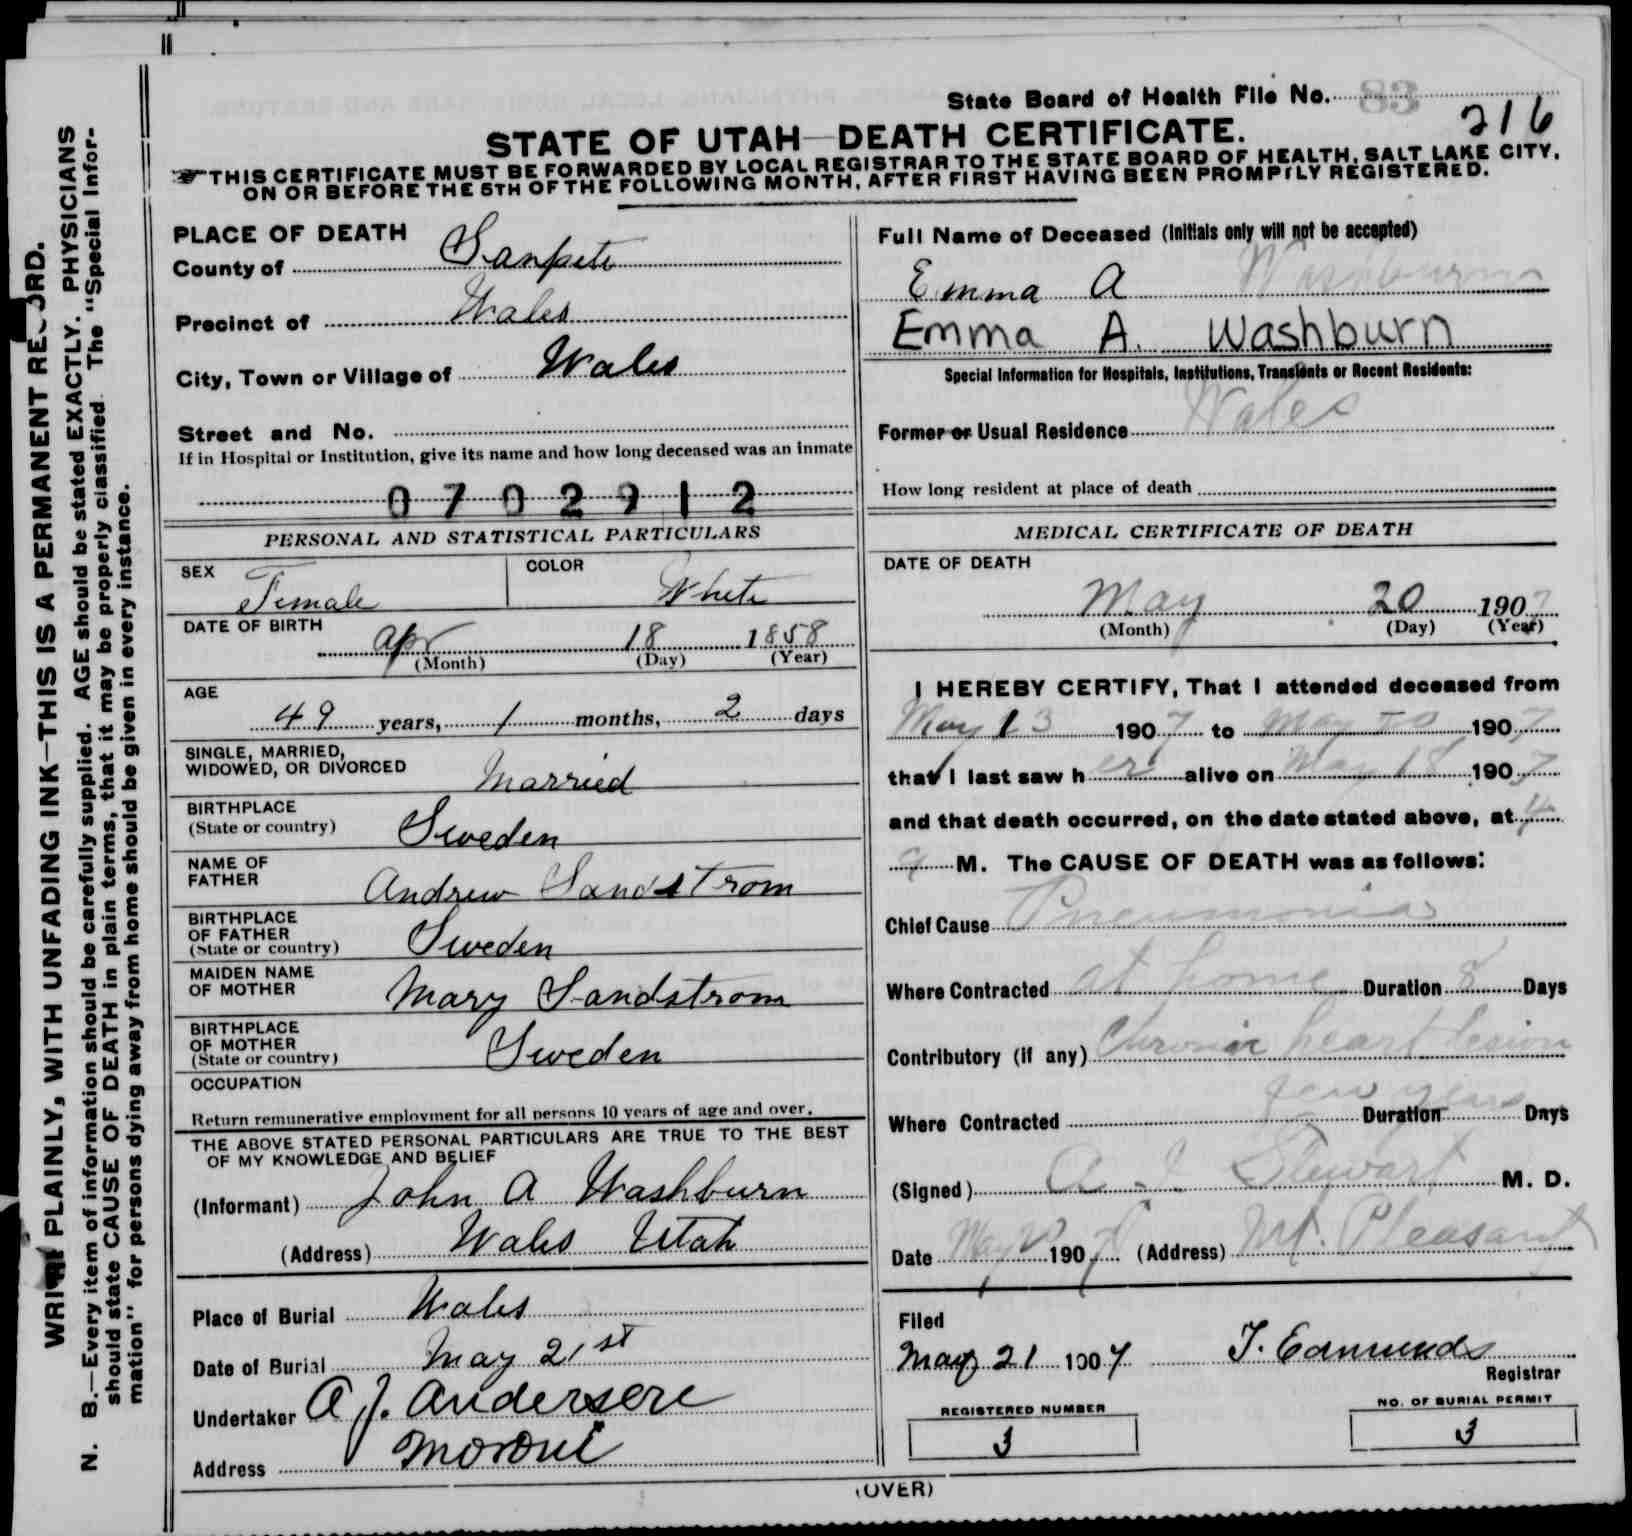 State Board of Health File No. 83
216
STATE OF UTAH—DEATH CERTIFICATE.
THIS CERTIFICATE MUST BE FORWARDED BY LOCAL REGISTRAR TO THE STATE BOARD OF HEALTH, SALT LAKE CITY,
ON OR BEFORE THE 5TH OF THE FOLLOWING MONTH, AFTER FIRST HAVING BEEN PROMPTLY REGISTERED.
WRITE PLAINLY, WITH UNFADING INK—THIS IS A PERMANENT RECORD.
N. B.—Every item of information should be carefully supplied. AGE should be stated EXACTLY. PHYSICIANS
should state CAUSE OF DEATH in plain terms, that it may be properly classified. The "Special Infor-
mation" for persons dying away from home should be given in every instance.
PLACE OF DEATH
County of Sanpete
Precinct of Wales
City, Town or Village of Wales
Street and No.
If in Hospital or Institution, give its name and how long deceased was an inmate
0702912
PERSONAL AND STATISTICAL PARTICULARS
SEX Female COLOR White
DATE OF BIRTH
Apr 18 1858
(Month) (Day) (Year)
AGE
49 years, 1 months, 2 days
SINGLE, MARRIED,
WIDOWED, OR DIVORCED Married
BIRTHPLACE
(State or country) Sweden
NAME OF
FATHER Andrew Sandstrom
BIRTHPLACE
OF FATHER
(State or country) Sweden
MAIDEN NAME
OF MOTHER Mary Sandstrom
BIRTHPLACE
OF MOTHER
(State or country) Sweden
OCCUPATION
Return remunerative employment for all persons 10 years of age and over.
THE ABOVE STATED PERSONAL PARTICULARS ARE TRUE TO THE BEST
OF MY KNOWLEDGE AND BELIEF
(Informant) John A Washburn
(Address) Wales Utah
Place of Burial Wales
Date of Burial May 21st
Undertaker A J. Andersen
Address Moroni
Full Name of Deceased (Initials only will not be accepted)
Emma A Washburn
Emma A. Washburn
Special Information for Hospitals, Institutions, Transients or Recent Residents:
Former or Usual Residence Wales
How long resident at place of death
MEDICAL CERTIFICATE OF DEATH
DATE OF DEATH
May 20 1907
(Month) (Day) (Year)
I HEREBY CERTIFY, That I attended deceased from
May 13 1907 to May 20 1907
that I last saw her alive on May 18 1907
and that death occurred, on the date stated above, at 4
a M. The CAUSE OF DEATH was as follows:
Chief Cause Pneumonia
Where Contracted at home Duration 8 Days
Contributory (if any) Chronic heart lesion
few years
Where Contracted Duration Days
(Signed) A. J. Stewart M. D.
Date May 1907 (Address) Mt. Pleasant
Filed
May 21 1907 T. Edmunds
Registrar
REGISTERED NUMBER
3
NO. OF BURIAL PERMIT
3
(OVER)